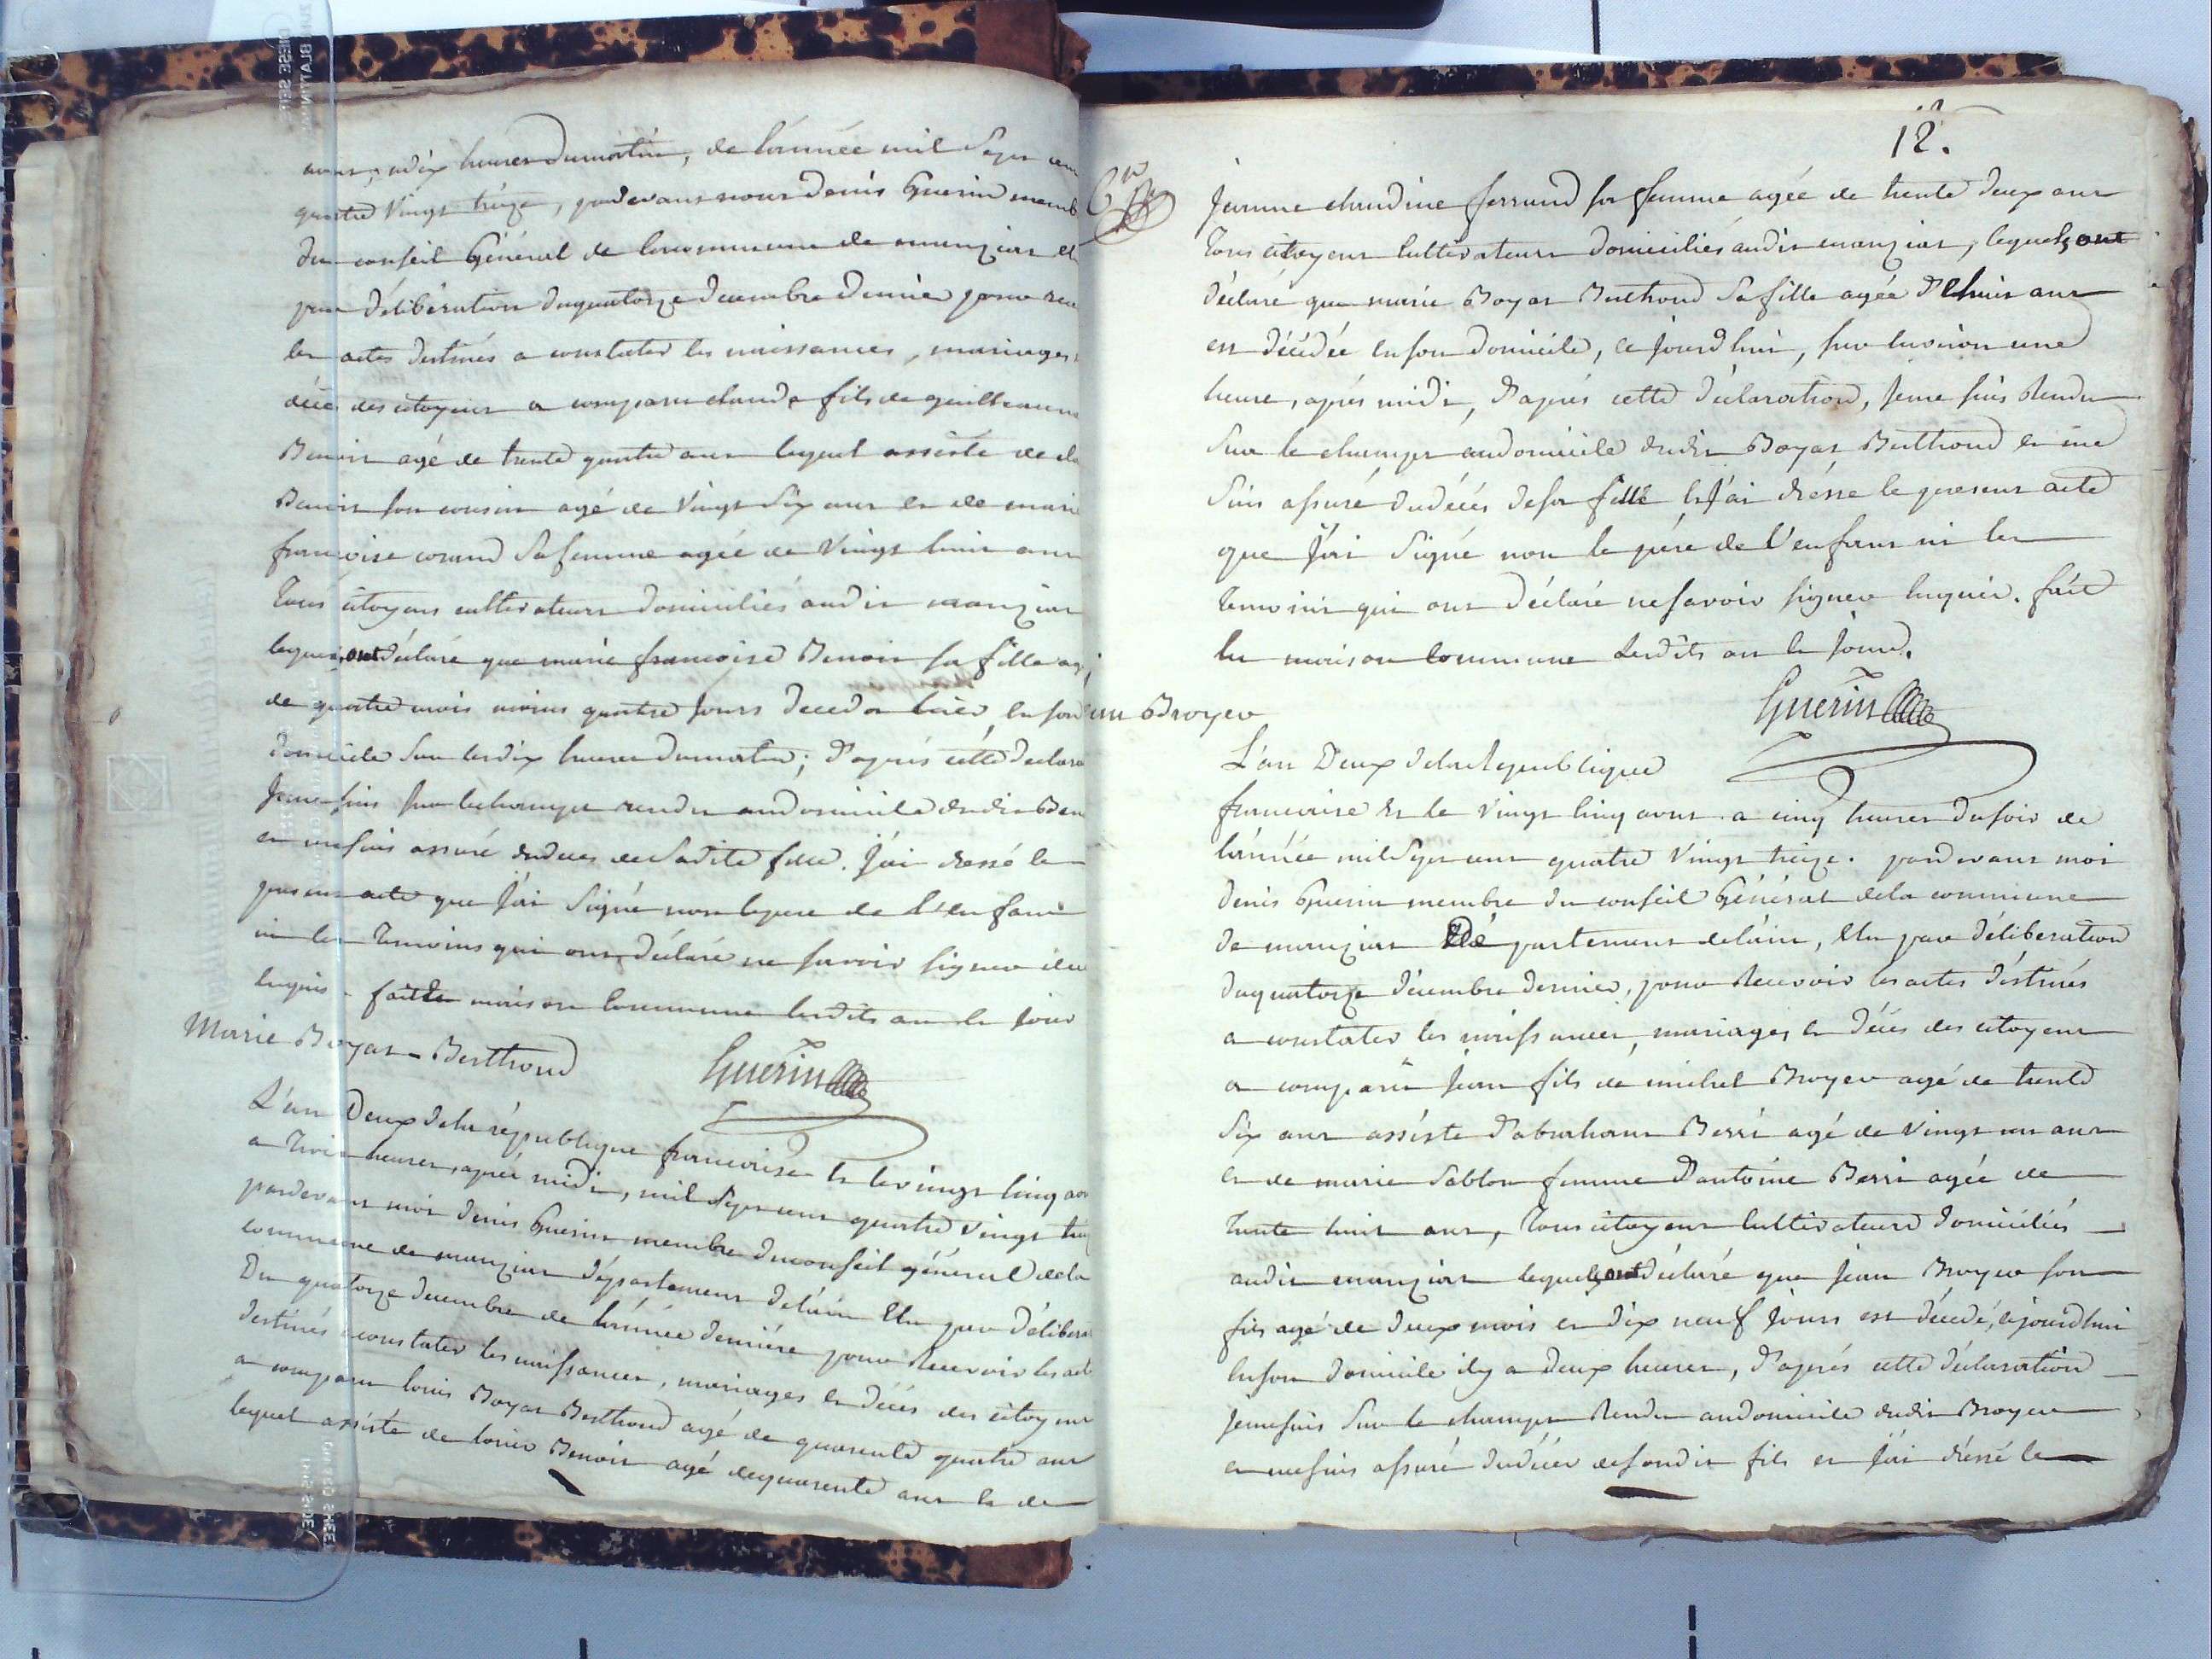 aoust, a dix heures du matin, de l'année mil sept cen
quatre vingt treize, pardevant nous denis Guerin memb
du conseil Général de la commune de manziat el
par délibération du quatorze decembre dernier pour rece
les actes destinés a constater les naissances, mariages
décès des citoyens a comparu claude fils de guillaume
Benoit agé de trente quatre ans lequel assisté de cla
Benoit son cousin agé de vingt six ans et de mari
françoise corand sa femme agée de vingt huit ans
tous citoyens cultivateurs domiciliés audit manziat
lequels ont déclaré que marie françoise Benoit sa fille ag
de quatre mois moins quatre jours deceda hier en son
domicile sur les dix heures du matin; d'aprés cette declara
Je me suis sur le champt rendu au domicile dudit Ben
et me suis assuré du deces de sadite fille. J'ai dressé le
present acte que j'ai signé non le pere de l'enfant
ni les temoins qui ont déclaré ne savoir signer de ce
enquis. fait en maison commune lesdits an et jour
Guerin
Marie Boyat-Berthoud
L'an Deux de la république francaise et le vingt cinq aou
a trois heures, aprés midi, mil sept cent quatre vingt trei
pardevant moi denis Guerin membre du conseil général de la
commune de manziat département de l'ain elu par délibera
Du quatorze decembre de l'année derniére pour recevoir les act
destinés a constater les naissances, mariages et décès des citoyens
a comparu louis Boyat Berthoud agé de quarente quatre ans
lequel assisté de louis Benoit agé de quarente ans et de
12.
Jeanne claudine ferrand sa femme agée de trente deux ans
tous citoyens cultivateurs domiciliés audit manziat, lequels ont
déclaré que marie Boyat Berthoud sa fille agée d'huit ans
est décédée en son domicile, ce jourd'hui, sur environ une
heure, aprés midi, d'aprés cette déclaration, je me suis rendu
sur le champt au domicile dudit Boyat Berthoud et me
suis assuré du décés de sa fille et j'ai dressé le present acte
que j'ai signé non le père de l'enfant ni les
temoins qui ont déclaré ne savoir signer enquis. fait
en maison commune lesdits an et jour.
Guerin
Jean Broyer
L'an Deux de la Republique
francaise et le vingt cinq aoust a cinq heures du soir de
l'année mil sept cent quatre vingt treize. pardevant moi
denis Guerin membre du conseil Général de la commune
de manziat Département de l'ain, elu par délibération
du quatorze décembre dernier, pour recevoir les actes déstinés
a constater les naissances, mariages et décès des citoyens
a comparu jean fils de michel Broyer agé de trente
six ans assisté d'abraham Berri agé de vingt un ans
et de marie sablon femme d'antoine Berri agée de
trente huit ans, tous citoyens cultivateurs domiciliés
audit manziat lequels ont déclaré que jean Broyer son
fils agé de deux mois et dix neuf jours est décédé, cejourdhui
en son domicile il y a deux heures, d'aprés cette déclaration
je me suis sur le champt rendu au domicile dudit Broyer
et me suis assuré du décés de sondit fils et j'ai dréssé le